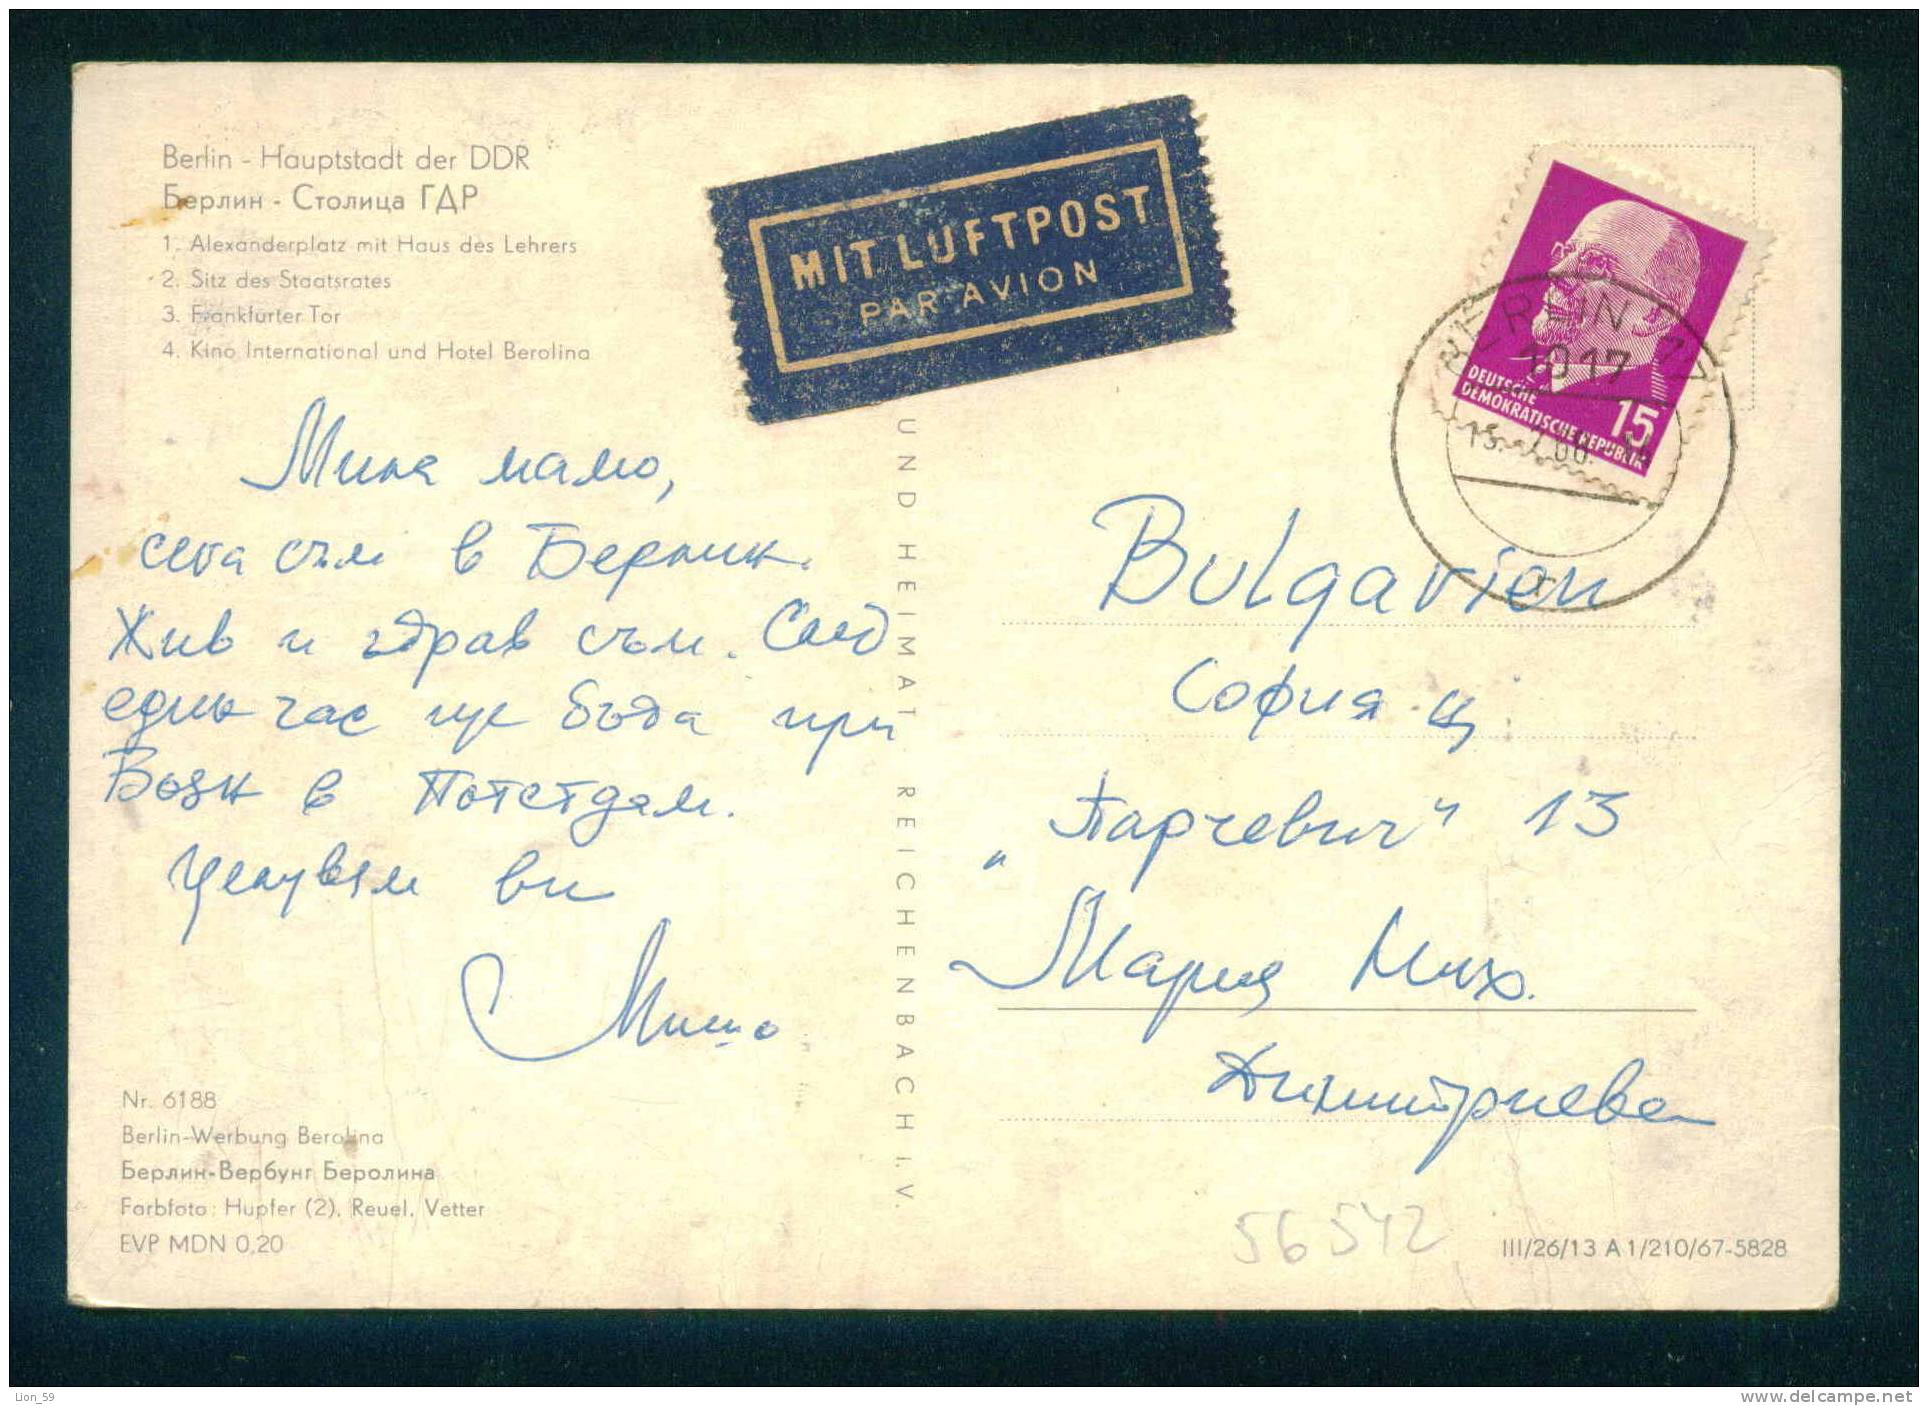 Berlin - Hauptstadt der DDR
Берлин - Столица ГДР
1. Alexanderplatz mit Haus des Lehrers
2. Sitz des Staatsrates
3. Frankfurter Tor
4. Kino International und Hotel Berolina
MIT LUFTPOST
PAR AVION
BERLIN
1017
DEUTSCHE
DEMOKRATISCHE REPUBLIK
15
Мила мамо,
сега съм в Берлин.
Жив и здрав съм. След
един час ще бъда при
в Потстдам.
Целувам ви
Мишо
UND HEIMAT REICHENBACH i. V.
Bulgarien
София ц
"Парчевич" 13
Мария Мих.
Димитриева
Nr. 6188
Berlin-Werbung Berolina
Берлин-Вербунг Беролина
Farbfoto: Hupfer (2), Reuel, Vetter
EVP MDN 0,20
56542
III/26/13 A 1/210/67-5828
Lion_59
www.delcampe.net